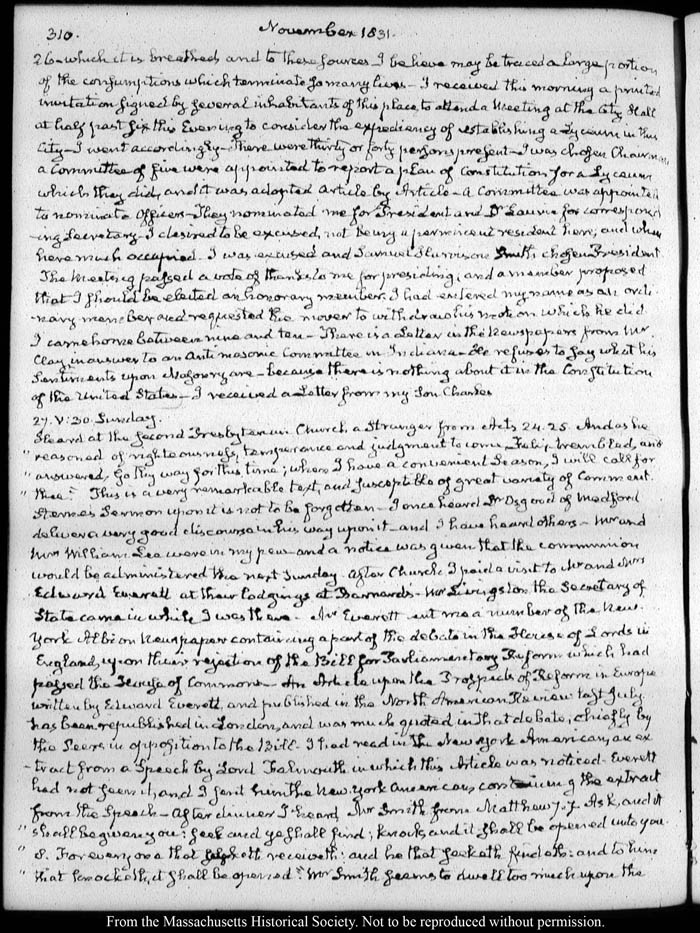 310.
November 1831.
26- which it is breathed and to these sources I believe may be traced a large portion
of the consumptions which terminate so many lives – I received this morning a printed
invitation signed by several inhabitants of this place to attend a Meeting at the City Hall
at half past six this Evening to consider the expediency of establishing a Lyceum in this
City – I went accordingly – There were thirty or forty persons present – I was chosen Chairman
a Committee of five were appointed to report a plan of Constitution for a Lyceum
which they did, and it was adopted article by Article – a Committee was appointed
to nominate Officers – They nominated me for President and Dr Laurie for correspond
-ing Secretary – I desired to be excused, not being a permanent resident here; and when
here much occupied. I was excused and Samuel Harrison Smith chosen President
The Meeting passed a vote of thanks to me for presiding, and a member proposed
that I should be elected an honorary member. I had entered my name as an ordi
-nary member and requested the mover to withdraw his motion which he did.
I came home between nine and ten – There is a Letter in the Newspapers from Mr
Clay in answer to an Anti masonic Committee in Indiana – He refuses to say what his
Sentiments upon Masonry are – because there is nothing about it in the Constitution
of the United States – I received a Letter from my Son Charles
27. V:30. Sunday.
Heard at the Second Presbyterian Church a Stranger from Acts 24.25. And as he
" reasoned of righteousness, temperance and judgment to come, Felix trembled, and
" answered, Go thy way for this time; when I have a convenient Season, I will call for
" thee." This is a very remarkable text, and susceptible of great variety of Comment.
Sterne's Sermon upon it is not to be forgotten – I once heard Dr Osgood of Medford
deliver a very good discourse in his way upon it – and I have heard others – Mr and
Mrs William Lea were in my pew – and a notice was given that the communion
would be administered the next Sunday – After Church I paid a visit to Mr and Mrs
Edward Everett at their lodgings at Barnard's – Mr Livingston the Secretary of
State came in while I was there – Mr Everett sent me a number of the New
York Albion Newspaper containing a part of the debate in the House of Lords in
England, upon their rejection of the Bill for Parliamentary Reform which had
passed the House of Commons – An Article upon the Prospects of Reform in Europe
written by Edward Everett, and published in the North American Review last July
has been republished in London, and was much quoted in that debate, chiefly by
the Peers in opposition to the Bill – I had read in the New York American, an ex
-tract from a Speech by Lord Falmouth in which this Article was noticed – Everett
had not seen it, and I sent him the New York American containing the extract
from the Speech – After dinner I heard Mr Smith from Matthew 7.7 Ask, and it
" shall be given you; seek and ye shall find; knock and it shall be opened unto you.
" 8. For every one that asketh receiveth: and he that seeketh findeth: and to him
" that knocketh, it shall be opened." Mr Smith seems to dwell too much upon the
From the Massachusetts Historical Society. Not to be reproduced without permission.